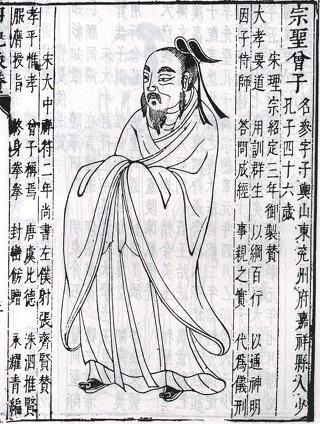 宗聖曾子
名參字子輿山東兗州府嘉祥縣人少
孔子四十六歲
宋理宗紹定三年御製贊
大孝要道 用訓群生 以綱百行 以通神明
因子侍師 答問成經 事親之實 代為儀刑
宋大中祥符二年尚書左僕射張齊賢贊
孝乎惟孝 曾子稱焉 唐虞比德 洙泗推賢
服膺授旨 終身拳拳 封巒飭贈 永耀青編